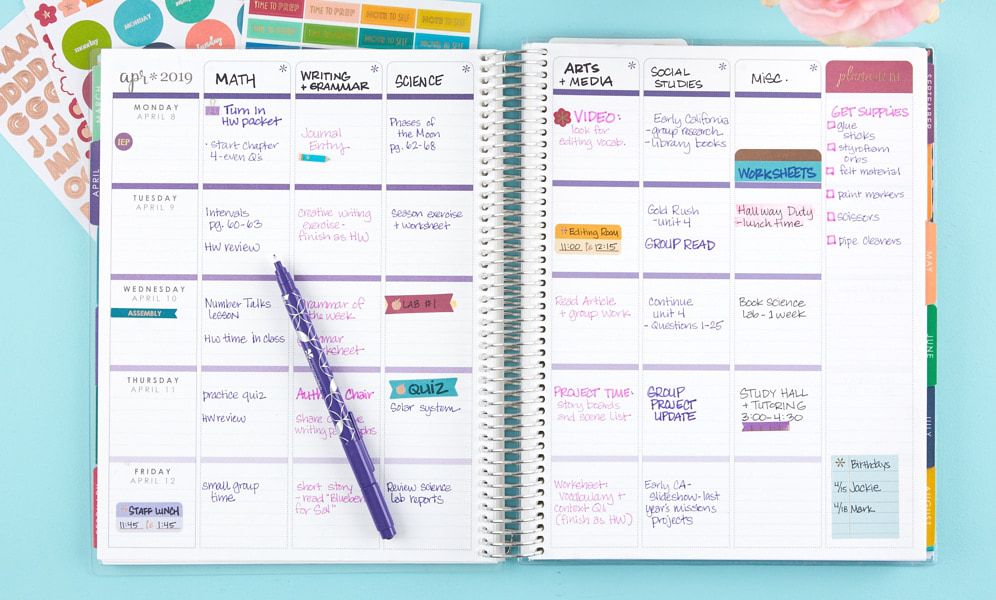 TIME TO PREP
TIME TO PREP
NOTE TO SELF
NOTE TO SELF
monday
MONDAY
apr * 2019
MATH
WRITING
+ GRAMMAR
SCIENCE
ARTS
+ MEDIA
SOCIAL
STUDIES
MISC.
MARCH
APRIL
SEPTEMBER
MAY
JUNE
JULY
AUGUST
MONDAY
APRIL 8
IEP
Turn In
HW packet
· start Chapter
4 - even Q's
Journal
Entry
Phases of
the Moon
pg. 62-68
VIDEO:
look for
editing vocab.
Early California
- group research
- library books
WORKSHEETS
GET SUPPLIES
glue
sticks
styrofoam
orbs
felt material
paint markers
scissors
pipe cleaners
TUESDAY
APRIL 9
Intervals
pg. 60-63
HW review
creative writing
exercise -
finish as HW
Season exercise
+ worksheet
Editing Room
11:00 to 12:15
Gold Rush
- unit 4
GROUP READ
Hallway Duty
- lunch time
WEDNESDAY
APRIL 10
ASSEMBLY
Number Talks
lesson
HW time in class
Grammar of
the week
LAB #1
Read Article
+ group work
Continue
unit 4
- Questions 1-25
Book science
lab - 1 week
THURSDAY
APRIL 11
practice quiz
HW review
Chair
Share
writing
QUIZ
Solar system
PROJECT TIME:
story boards
and scene list
GROUP
PROJECT
UPDATE
STUDY HALL
+ TUTORING
3:00-4:30
FRIDAY
APRIL 12
STAFF LUNCH
11:45 to 1:45
small group
time
short story
- read "Blueberries
for Sal"
Review science
lab reports
Worksheet:
Vocabulary +
context Q's
(finish as HW)
Early CA -
slideshow - last
year's missions
projects
Birthdays
4/15 Jackie
4/18 Mark